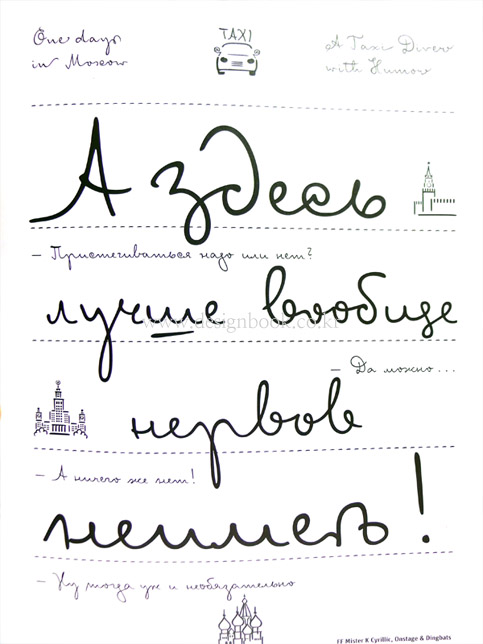 One days
in Moscow
TAXI
A Taxi Diver
with Humor
А здесь
– Пристегиваться надо или нет?
лучше вообще
www.designbook.co.kr
– Да можно...
нервов
– А ничего же нет!
неиметь!
– Ну тогда уж и необязательно
FF Mister K Cyrillic, Onstage & Dingbats